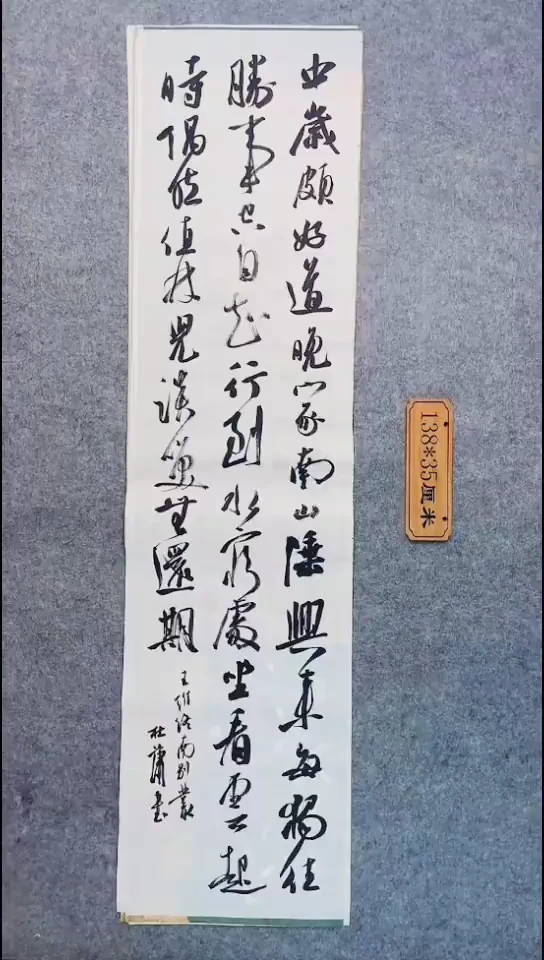 中歲頗好道晚家南山陲興来每獨往
勝事空自知行到水窮處坐看雲起
時偶然值林叟談笑無還期
王維終南別業
杜書
138*35厘米